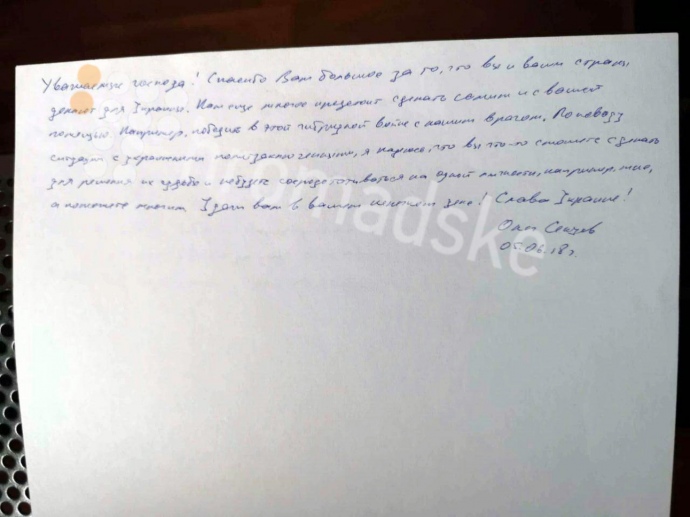 Уважаемые господа! Спасибо Вам большое за то, что вы и ваши страны
делают для Украины. Нам еще многое предстоит сделать самим и с вашей
помощью. Например, победить в этой гибридной войне с нашим врагом. По поводу
ситуации с украинскими политзаключенными, я надеюсь, что вы что-то сможете сделать
для решения их судьбы и не будете сосредотачиваться на одной личности, например, мне,
а поможете многим. Удачи вам в вашем нелегком деле! Слава Украине!
Олег Сенцов
05.06.18г.
hromadske